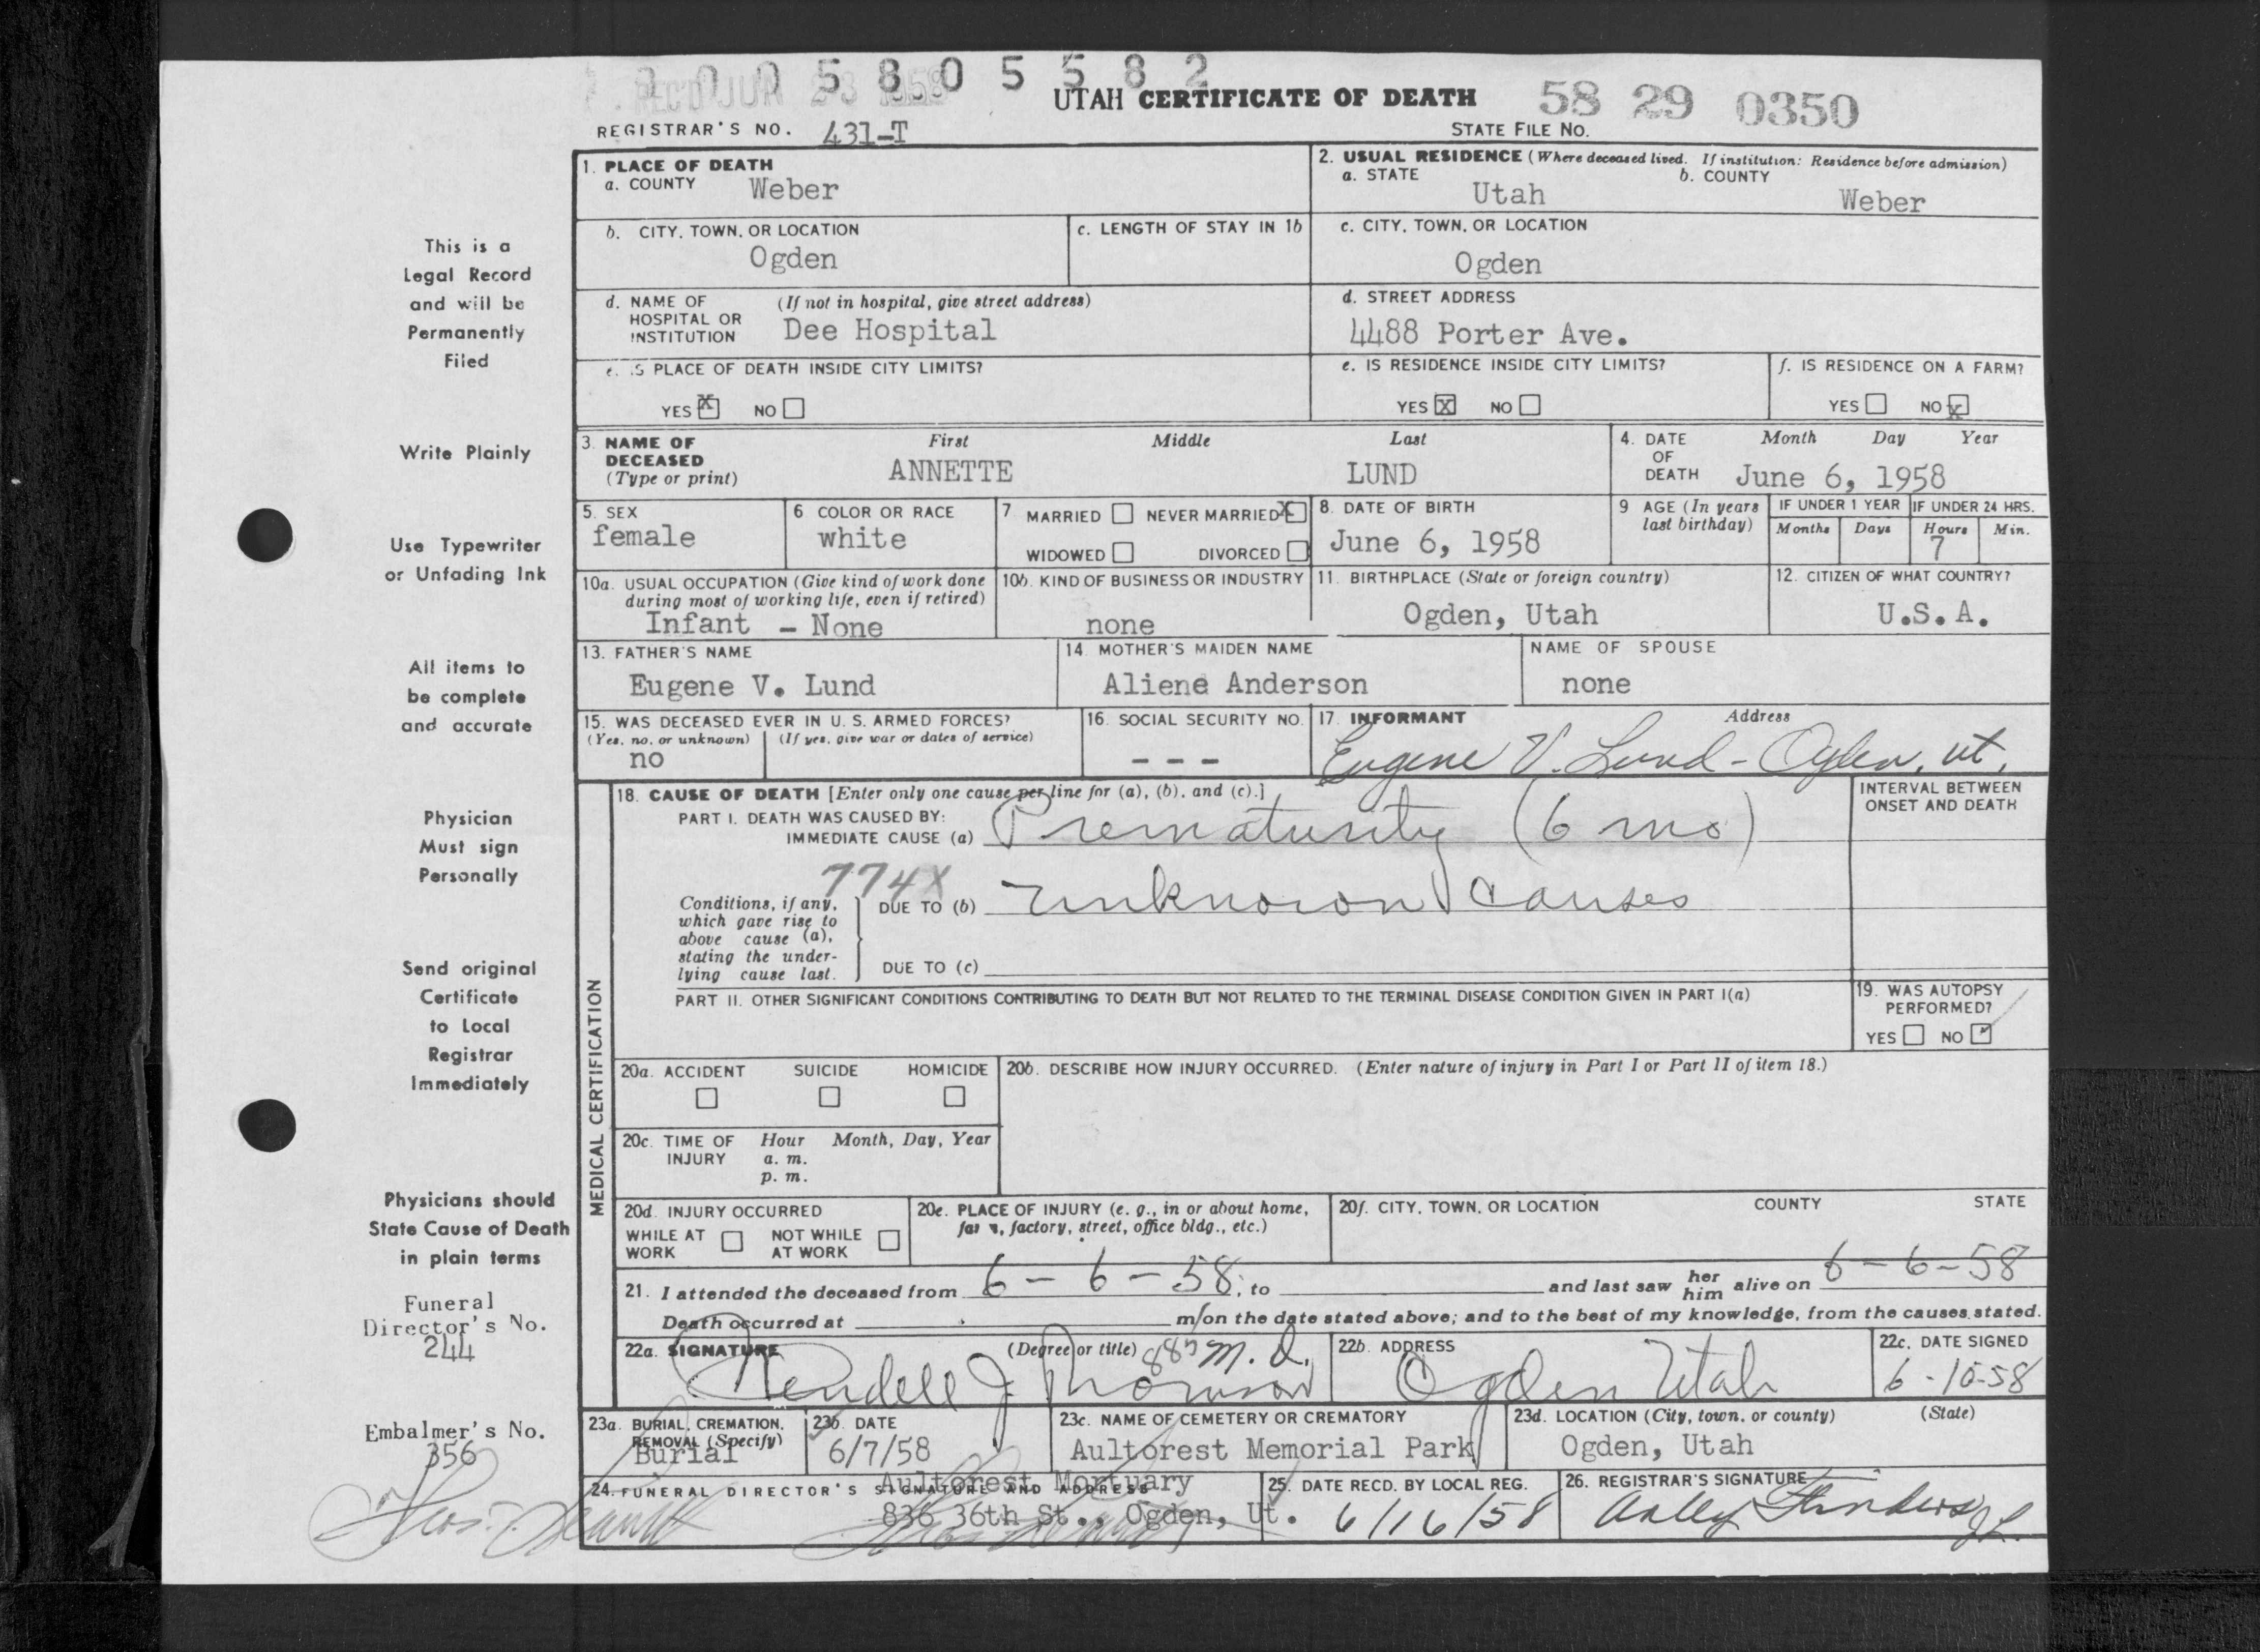 005805582
REC'D JUN 23 1958
UTAH CERTIFICATE OF DEATH
58 29 0350
REGISTRAR'S NO. 431-T
STATE FILE NO.
This is a
Legal Record
and will be
Permanently
Filed
Write Plainly
Use Typewriter
or Unfading Ink
All items to
be complete
and accurate
Physician
Must sign
Personally
Send original
Certificate
to Local
Registrar
Immediately
Physicians should
State Cause of Death
in plain terms
Funeral
Director's No.
244
Embalmer's No.
356
1. PLACE OF DEATH
a. COUNTY Weber
2. USUAL RESIDENCE (Where deceased lived. If institution: Residence before admission)
a. STATE Utah
b. COUNTY Weber
b. CITY, TOWN, OR LOCATION
Ogden
c. LENGTH OF STAY IN 1b
c. CITY, TOWN, OR LOCATION
Ogden
d. NAME OF HOSPITAL OR INSTITUTION (If not in hospital, give street address)
Dee Hospital
d. STREET ADDRESS
4488 Porter Ave.
e. IS PLACE OF DEATH INSIDE CITY LIMITS?
YES X NO
e. IS RESIDENCE INSIDE CITY LIMITS?
YES X NO
f. IS RESIDENCE ON A FARM?
YES NO X
3. NAME OF DECEASED (Type or print)
First Middle Last
ANNETTE LUND
4. DATE OF DEATH
Month Day Year
June 6, 1958
5. SEX
female
6 COLOR OR RACE
white
7 MARRIED NEVER MARRIED X
WIDOWED DIVORCED
8. DATE OF BIRTH
June 6, 1958
9 AGE (In years last birthday)
IF UNDER 1 YEAR
Months Days
IF UNDER 24 HRS.
Hours Min.
7
10a. USUAL OCCUPATION (Give kind of work done
during most of working life, even if retired)
Infant - None
10b. KIND OF BUSINESS OR INDUSTRY
none
11. BIRTHPLACE (State or foreign country)
Ogden, Utah
12. CITIZEN OF WHAT COUNTRY?
U.S.A.
13. FATHER'S NAME
Eugene V. Lund
14. MOTHER'S MAIDEN NAME
Aliene Anderson
NAME OF SPOUSE
none
15. WAS DECEASED EVER IN U. S. ARMED FORCES?
(Yes, no, or unknown) (If yes, give war or dates of service)
no
16. SOCIAL SECURITY NO.
- - -
17. INFORMANT Address
Eugene V. Lund - Ogden, ut.
MEDICAL CERTIFICATION
18. CAUSE OF DEATH [Enter only one cause per line for (a), (b), and (c).]
INTERVAL BETWEEN
ONSET AND DEATH
PART I. DEATH WAS CAUSED BY:
IMMEDIATE CAUSE (a) Prematurity (6 mo)
774X
Conditions, if any,
which gave rise to
above cause (a),
stating the under-
lying cause last.
DUE TO (b) unknown causes
DUE TO (c)
PART II. OTHER SIGNIFICANT CONDITIONS CONTRIBUTING TO DEATH BUT NOT RELATED TO THE TERMINAL DISEASE CONDITION GIVEN IN PART I(a)
19. WAS AUTOPSY
PERFORMED?
YES NO ✓
20a. ACCIDENT SUICIDE HOMICIDE
20b. DESCRIBE HOW INJURY OCCURRED. (Enter nature of injury in Part I or Part II of item 18.)
20c. TIME OF INJURY
Hour Month, Day, Year
a. m.
p. m.
20d. INJURY OCCURRED
WHILE AT WORK NOT WHILE AT WORK
20e. PLACE OF INJURY (e. g., in or about home,
farm, factory, street, office bldg., etc.)
20f. CITY, TOWN, OR LOCATION COUNTY STATE
21. I attended the deceased from 6-6-58, to and last saw her him alive on 6-6-58
Death occurred at m on the date stated above; and to the best of my knowledge, from the causes stated.
22a. SIGNATURE (Degree or title)
M. D.
22b. ADDRESS
Ogden Utah
22c. DATE SIGNED
6-10-58
23a. BURIAL, CREMATION,
REMOVAL (Specify)
Burial
23b. DATE
6/7/58
23c. NAME OF CEMETERY OR CREMATORY
Aultorest Memorial Park
23d. LOCATION (City, town, or county) (State)
Ogden, Utah
24. FUNERAL DIRECTOR'S SIGNATURE AND ADDRESS
Aultorest Mortuary
836 36th St., Ogden, Ut.
25. DATE RECD. BY LOCAL REG.
6/16/58
26. REGISTRAR'S SIGNATURE